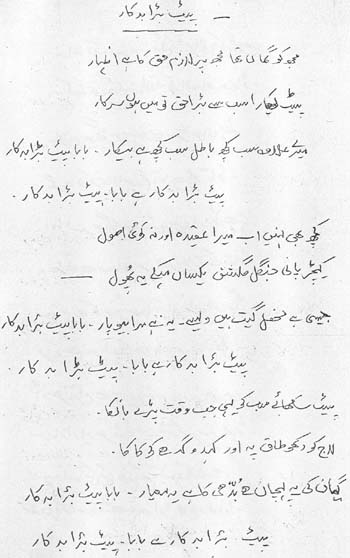 پیٹ بڑا بدکار
مجھ کو گماں تھا مجھ پر لازم حق کا ہے اظہار
پیٹ پکارا سب سے بڑا حق تو میں ہوں سرکار
میرے علاوہ سب کچھ باطل سب کچھ ہے بیکار - بابا پیٹ بڑا بدکار
پیٹ بڑا بدکار ہے بابا - پیٹ بڑا بدکار -
کچھ بھی نہیں اب میرا عقیدہ اور نہ کوئی اصول
کیچڑ پانی جنگل گلشن یکساں مہکے یہ پھول
جیسی ہے محفل گیت ہیں ویسے - یہ ہے میرا بیوپار - بابا پیٹ بڑا بدکار
پیٹ بڑا بدکار ہے بابا - پیٹ بڑا بدکار -
پیٹ سکھائے سب کو یہی جب وقت پڑے بانکا -
لاج کو رکھو طاق پہ اور کہدو گدھے کو کاکا -
گیان کی یہ پہچان ہے بدھی کا ہے یہ معیار - بابا پیٹ بڑا بدکار
پیٹ بڑا بدکار ہے بابا - پیٹ بڑا بدکار